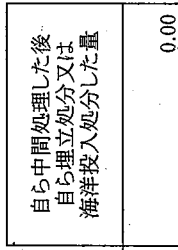 自ら中間処理した後
自ら埋立処分又は
海洋投入処分した量
0.00